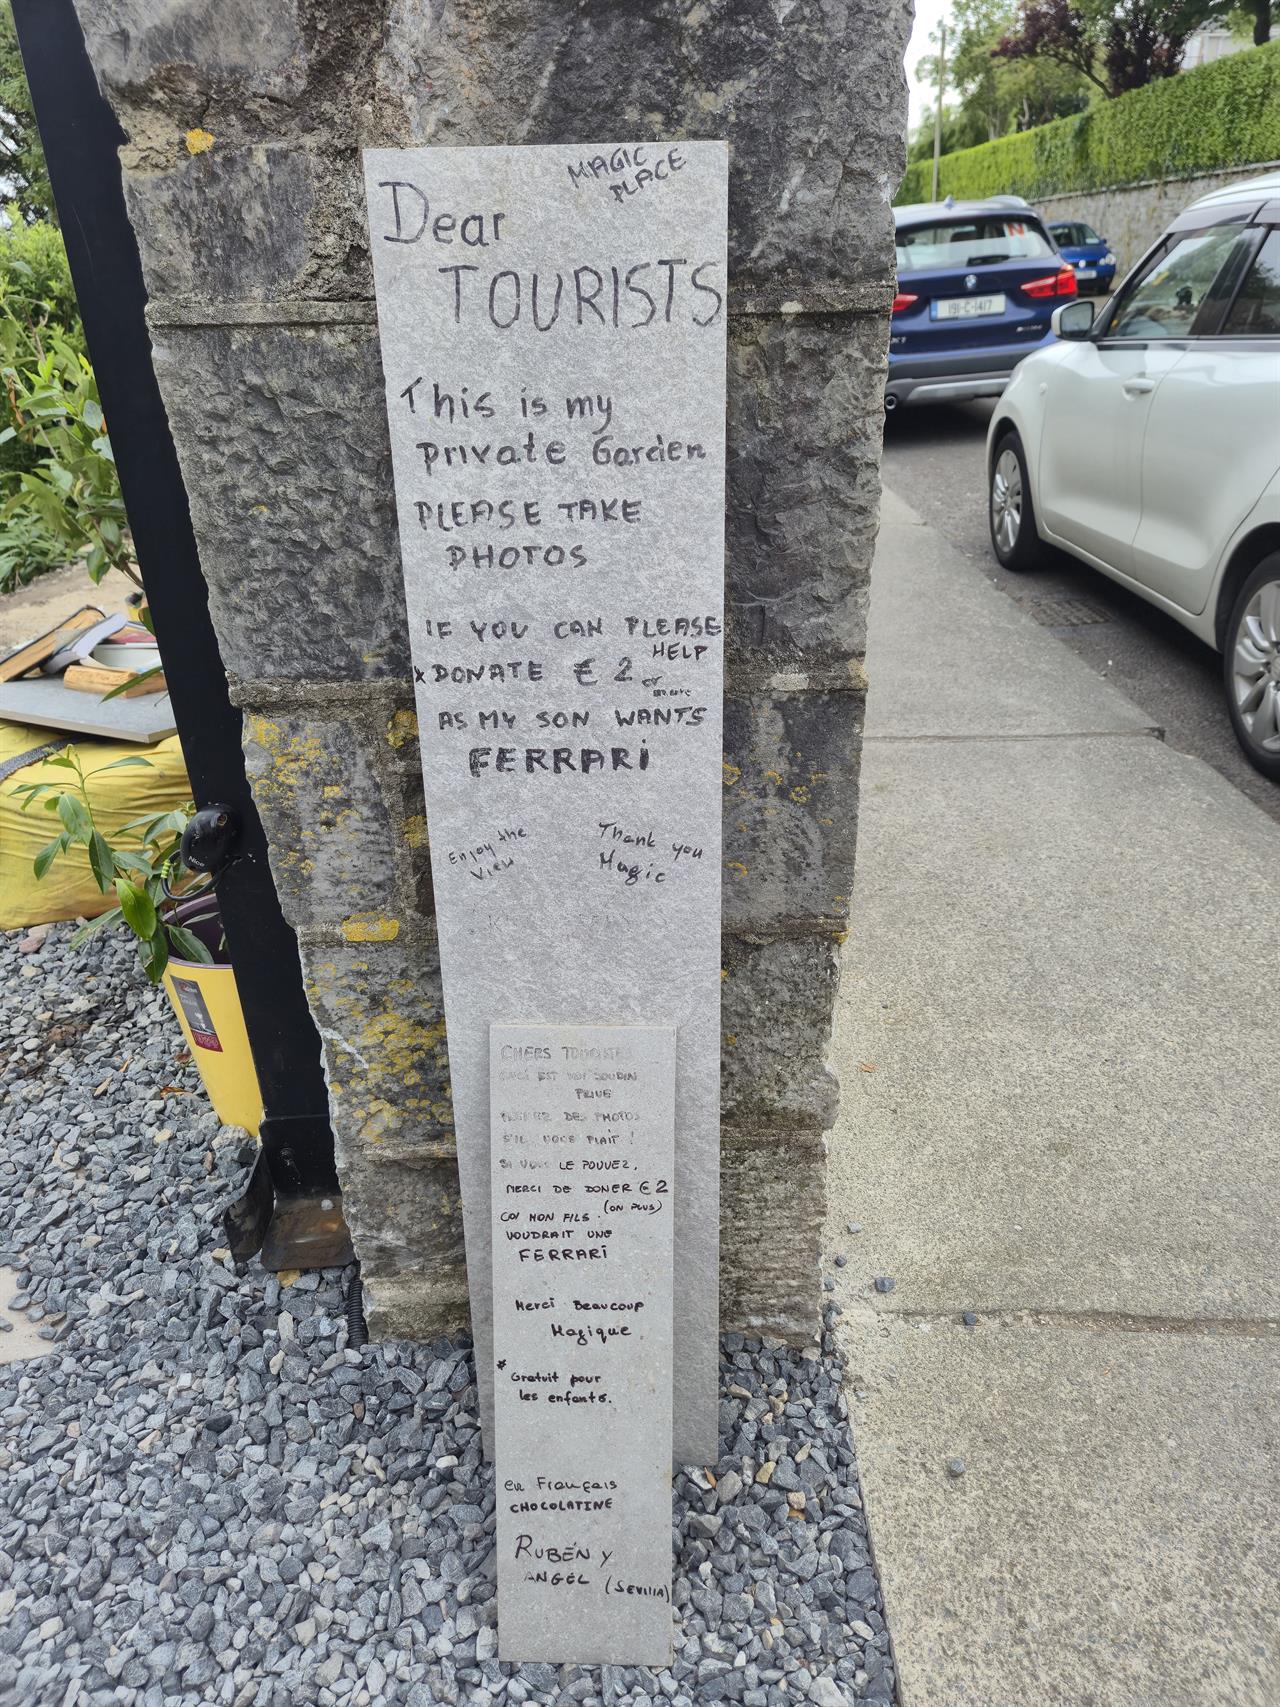 MAGIC
PLACE
Dear
TOURISTS
This is my
Private Garden
PLEASE TAKE
PHOTOS
IF YOU CAN PLEASE
HELP
*DONATE € 2 or
more
AS MY SON WANTS
FERRARI
Enjoy the
View
Thank you
Magic
CHERS
EST
PRIVE
DES PHOTOS
S'IL VOUS PLAIT !
SI VOUS LE POUVEZ,
MERCI DE DONER € 2
(OU PLUS)
MON FILS
VOUDRAIT UNE
FERRARI
Merci Beaucoup
Magique
* Gratuit pour
les enfants.
en Français
CHOCOLATINE
RUBÉN Y
ANGEL (SEVIllA)
191-C-1417
N
X1
Nice